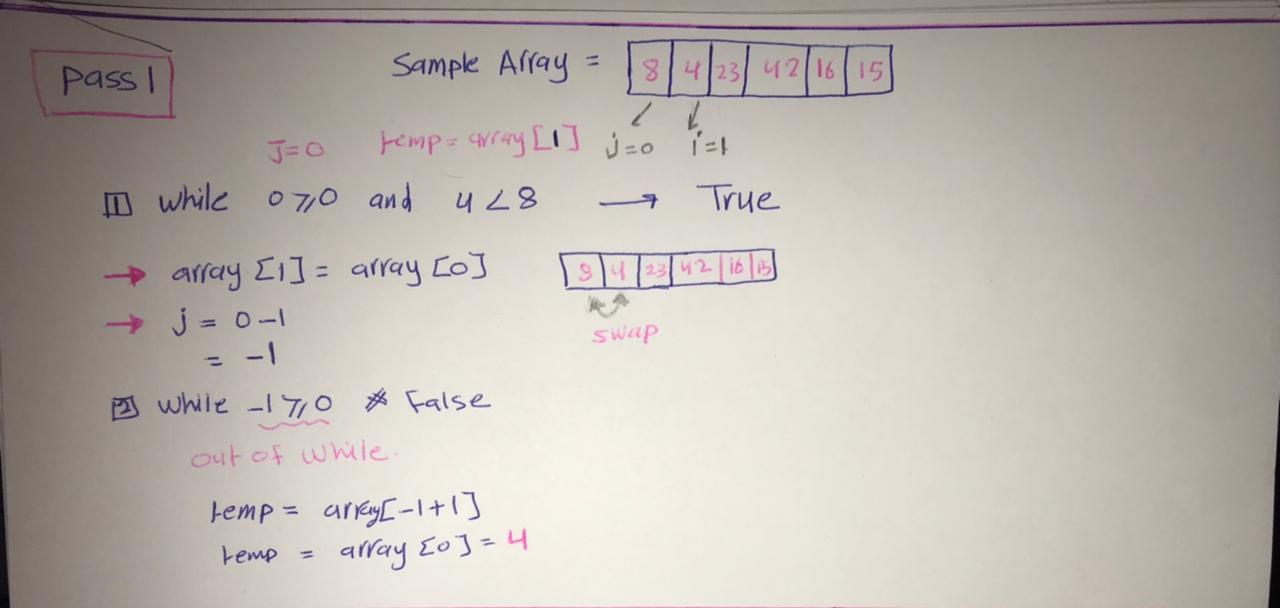 Pass 1
Sample Array = 8 4 23 42 16 15
J=0 temp = array[1] j=0 i=1
1 while 0≥0 and 4<8 → True
→ array [1] = array [0] 8 4 23 42 16 15
→ j = 0-1
swap
= -1
2 while -1≥0 * False
out of while.
temp = array[-1+1]
temp = array [0] = 4